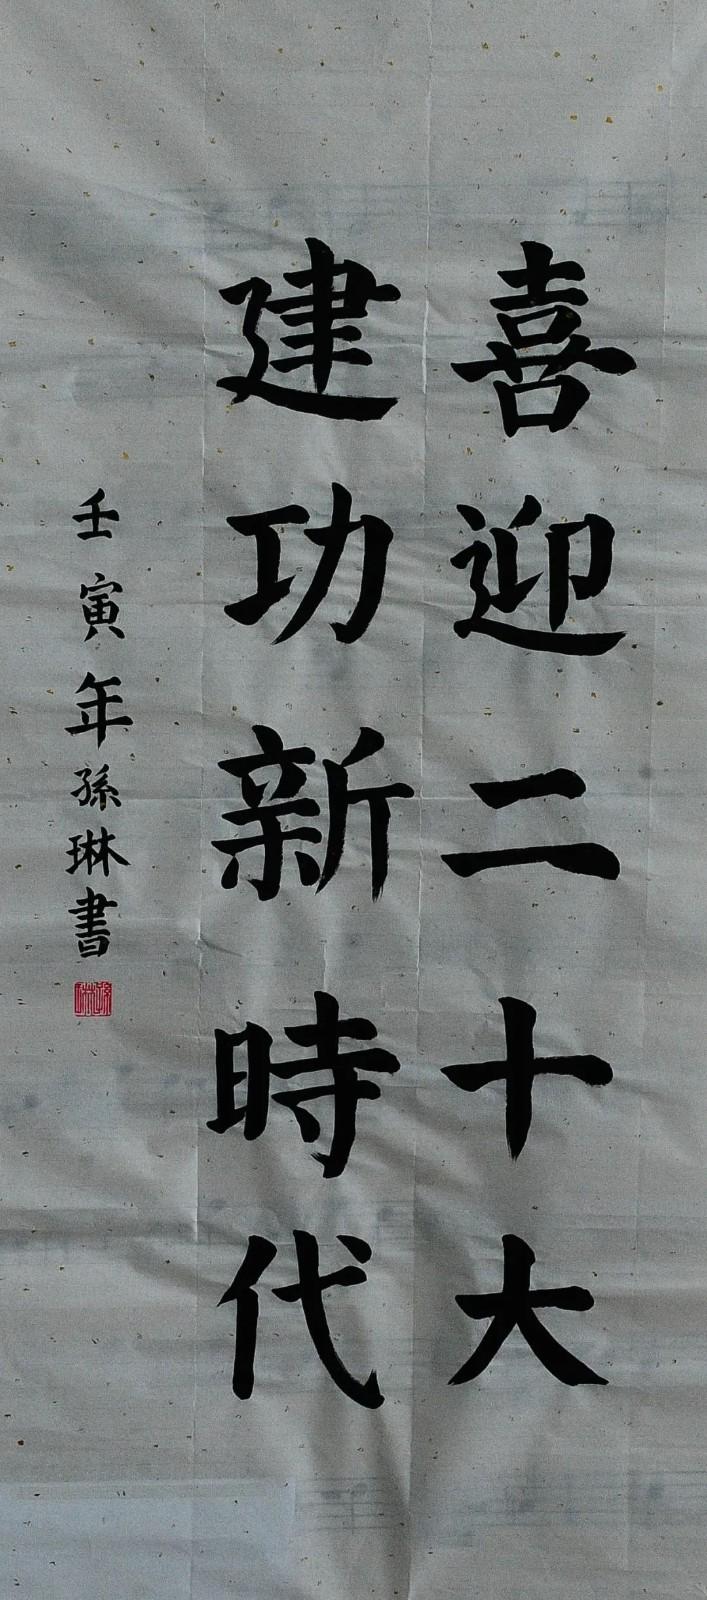 喜迎二十大
建功新時代
壬寅年孫琳書